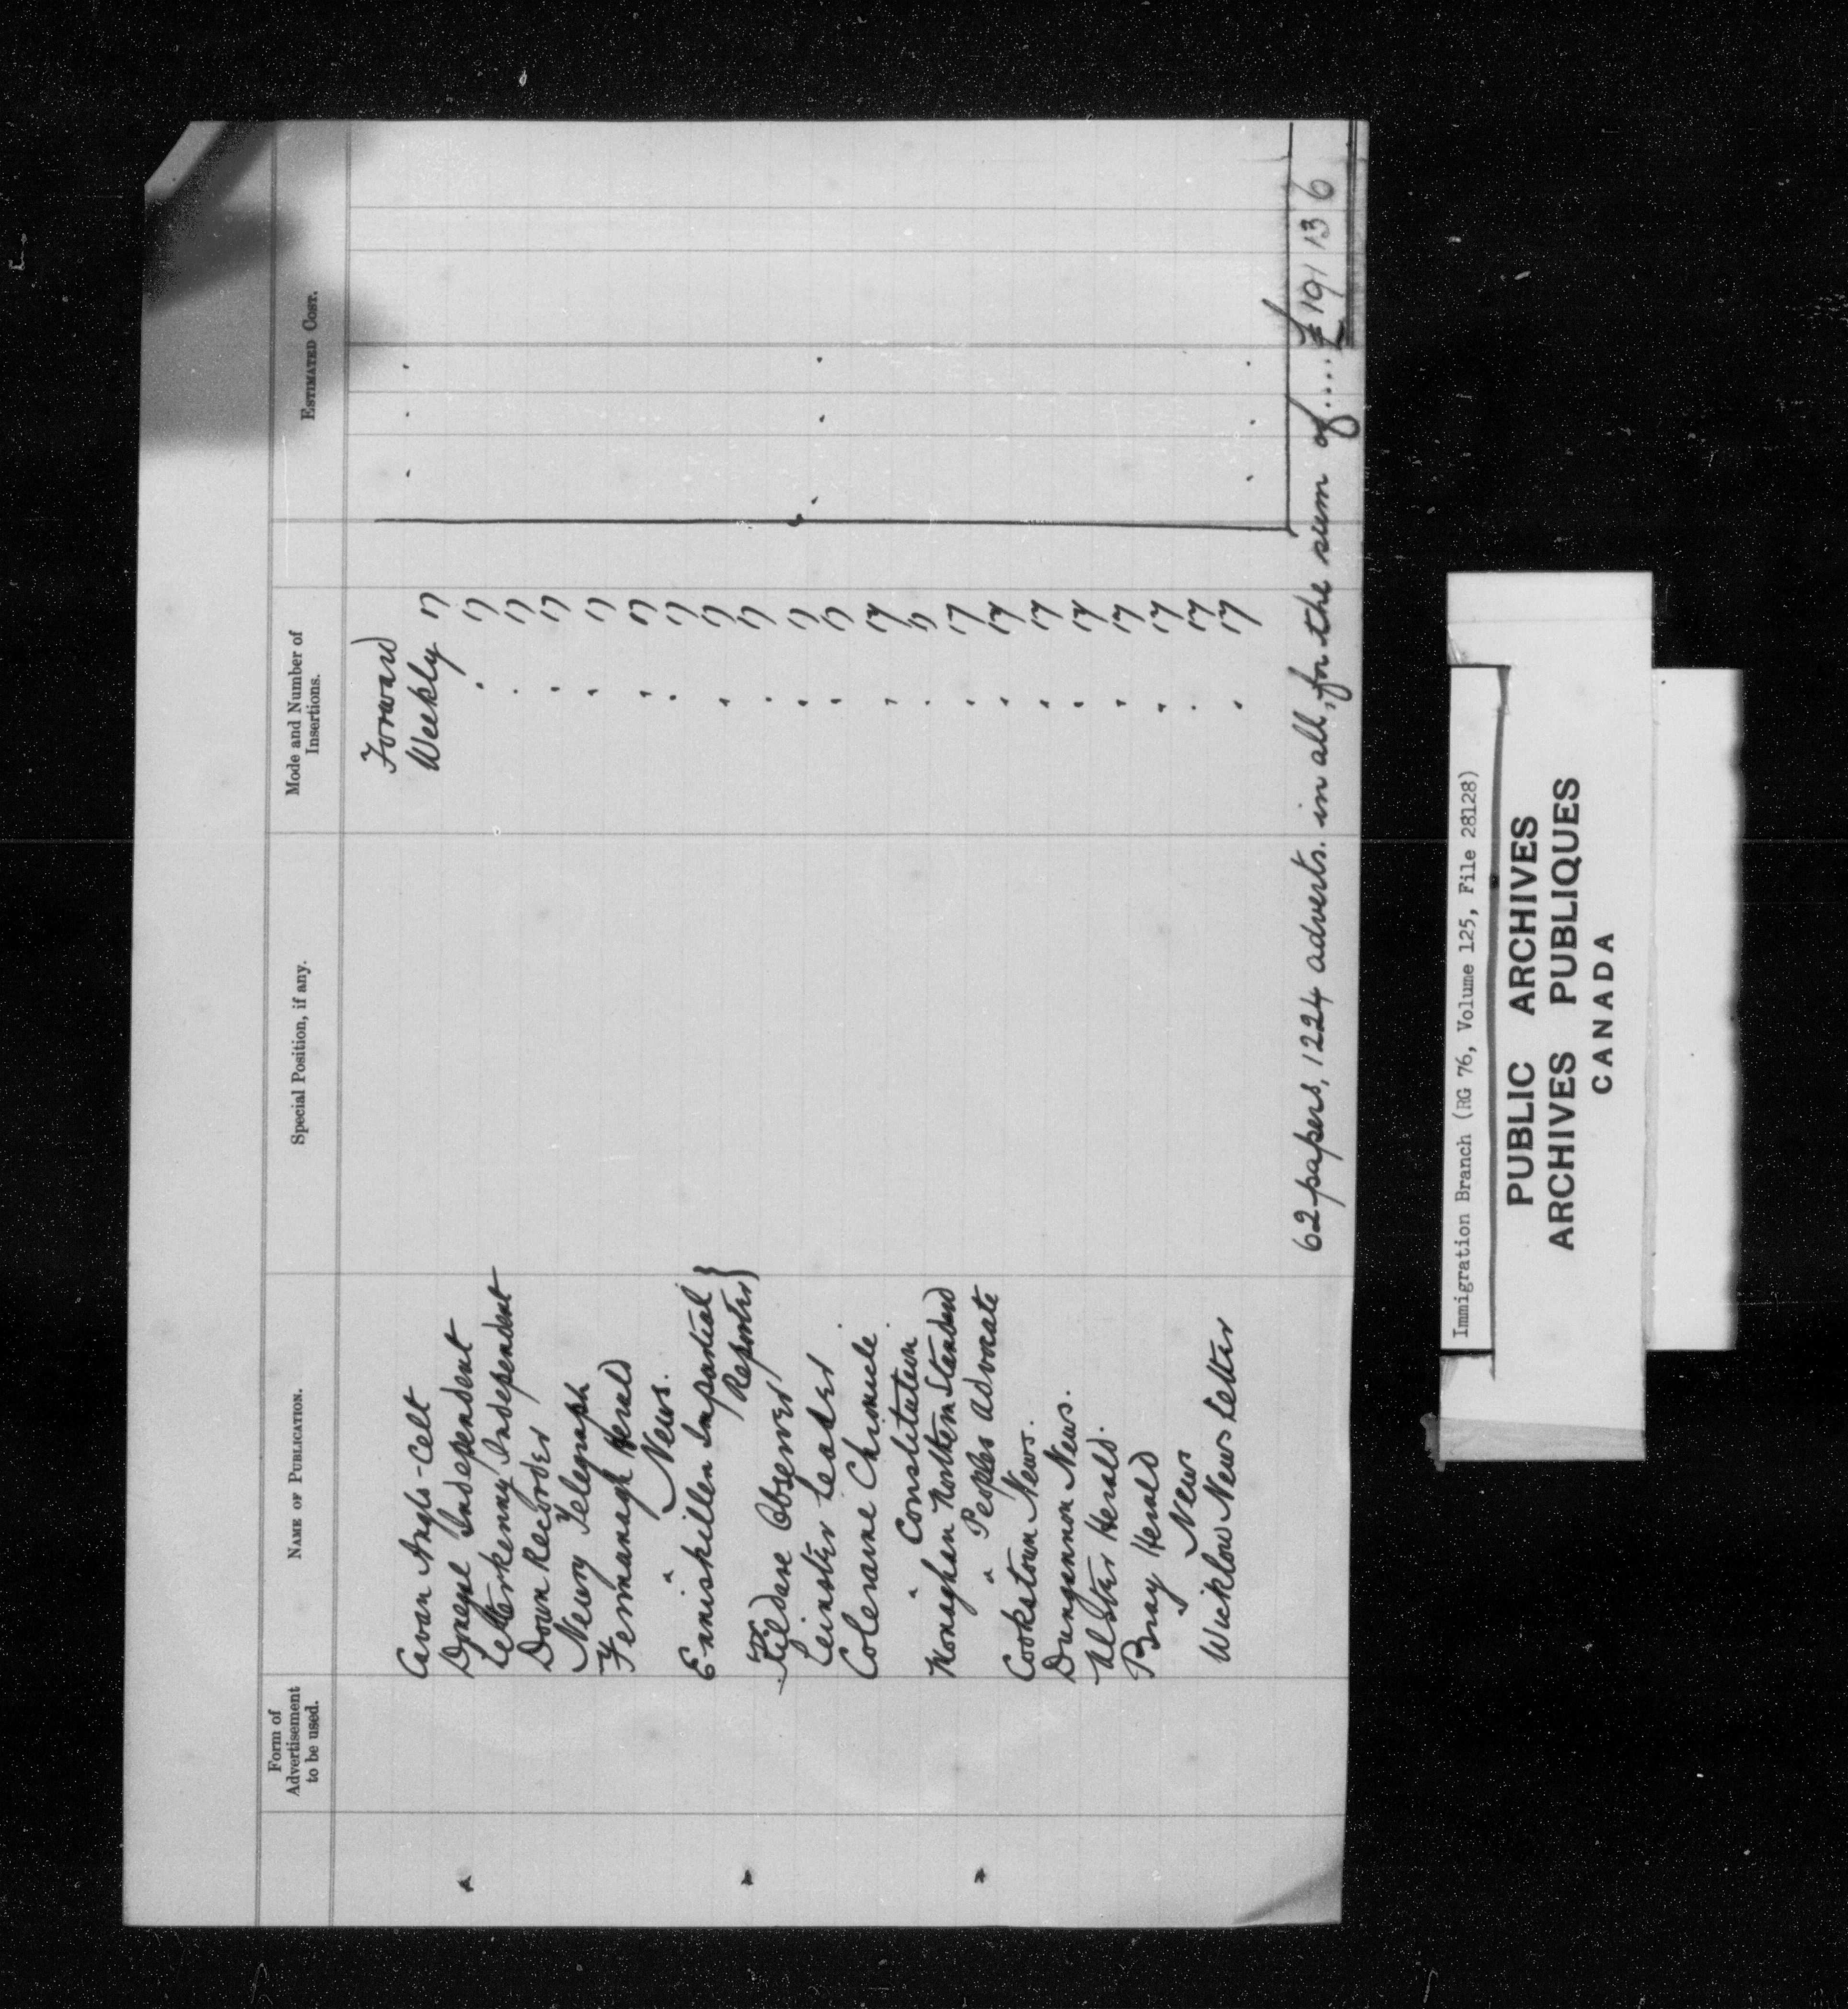 Form of
Advertisement
to be used.
NAME OF PUBLICATION.
Special Position, if any.
Mode and Number of
Insertions.
ESTIMATED COST.
Forward
Cavan Anglo-Celt Weekly 17
Donegal Independent " 17
Letterkenny Independent " 17
Down Recorder " 17
Newry Telegraph " 17
Fermanagh Herald " 17
" News. " 17
Enniskillen Impartial } " 17
Reporter } " 17
Kildare Observer " 17
Leinster Leader " 17
Coleraine Chronicle. " 17
" Constitution " 17
Monaghan Northern Standard " 17
" Peoples Advocate " 17
Cookstown News. " 17
Dungannon News. " 17
Ulster Herald. " 17
Bray Herald " 17
" News " 17
Wicklow News Letter " 17
62 papers, 1224 adverts. in all, for the sum of .... £191 13 6
Immigration Branch (RG 76, Volume 125, File 28128)
PUBLIC ARCHIVES
ARCHIVES PUBLIQUES
CANADA